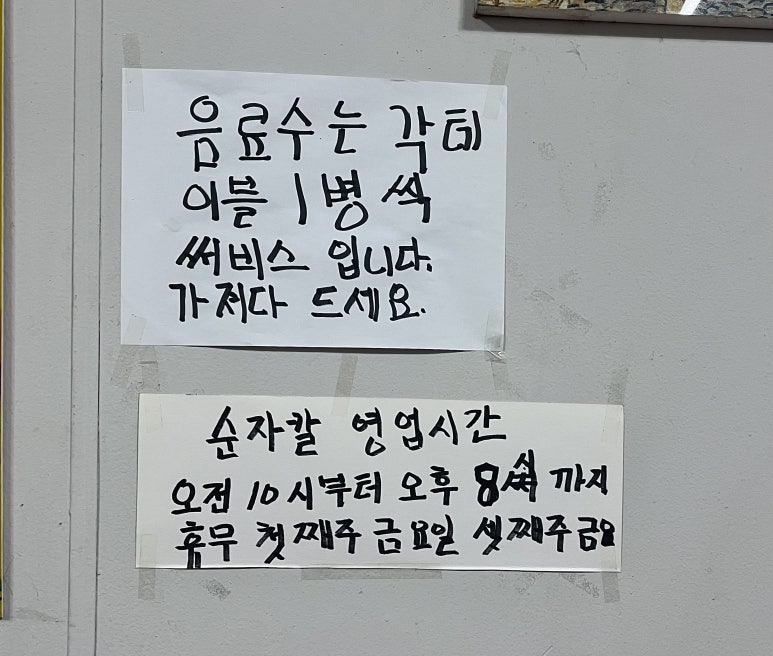 음료수는 각테
이블 1병 씩
써비스 입니다.
가져다 드세요.
순자칼 영업시간
오전 10시부터 오후 8시 까지
휴무 첫째주 금요일 셋째주금요